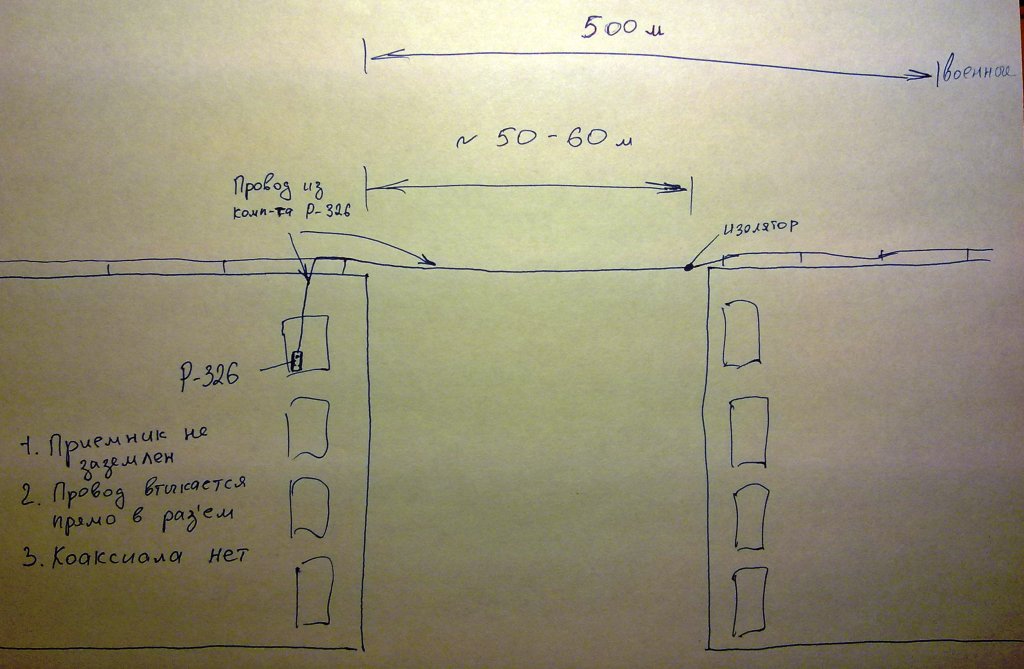 500 м
военное
~ 50 - 60 м
Провод из
комп-та Р-326
изолятор
Р-326
1. Приемник не
заземлен
2. Провод втыкается
прямо в раз'ем
3. Коаксиала нет